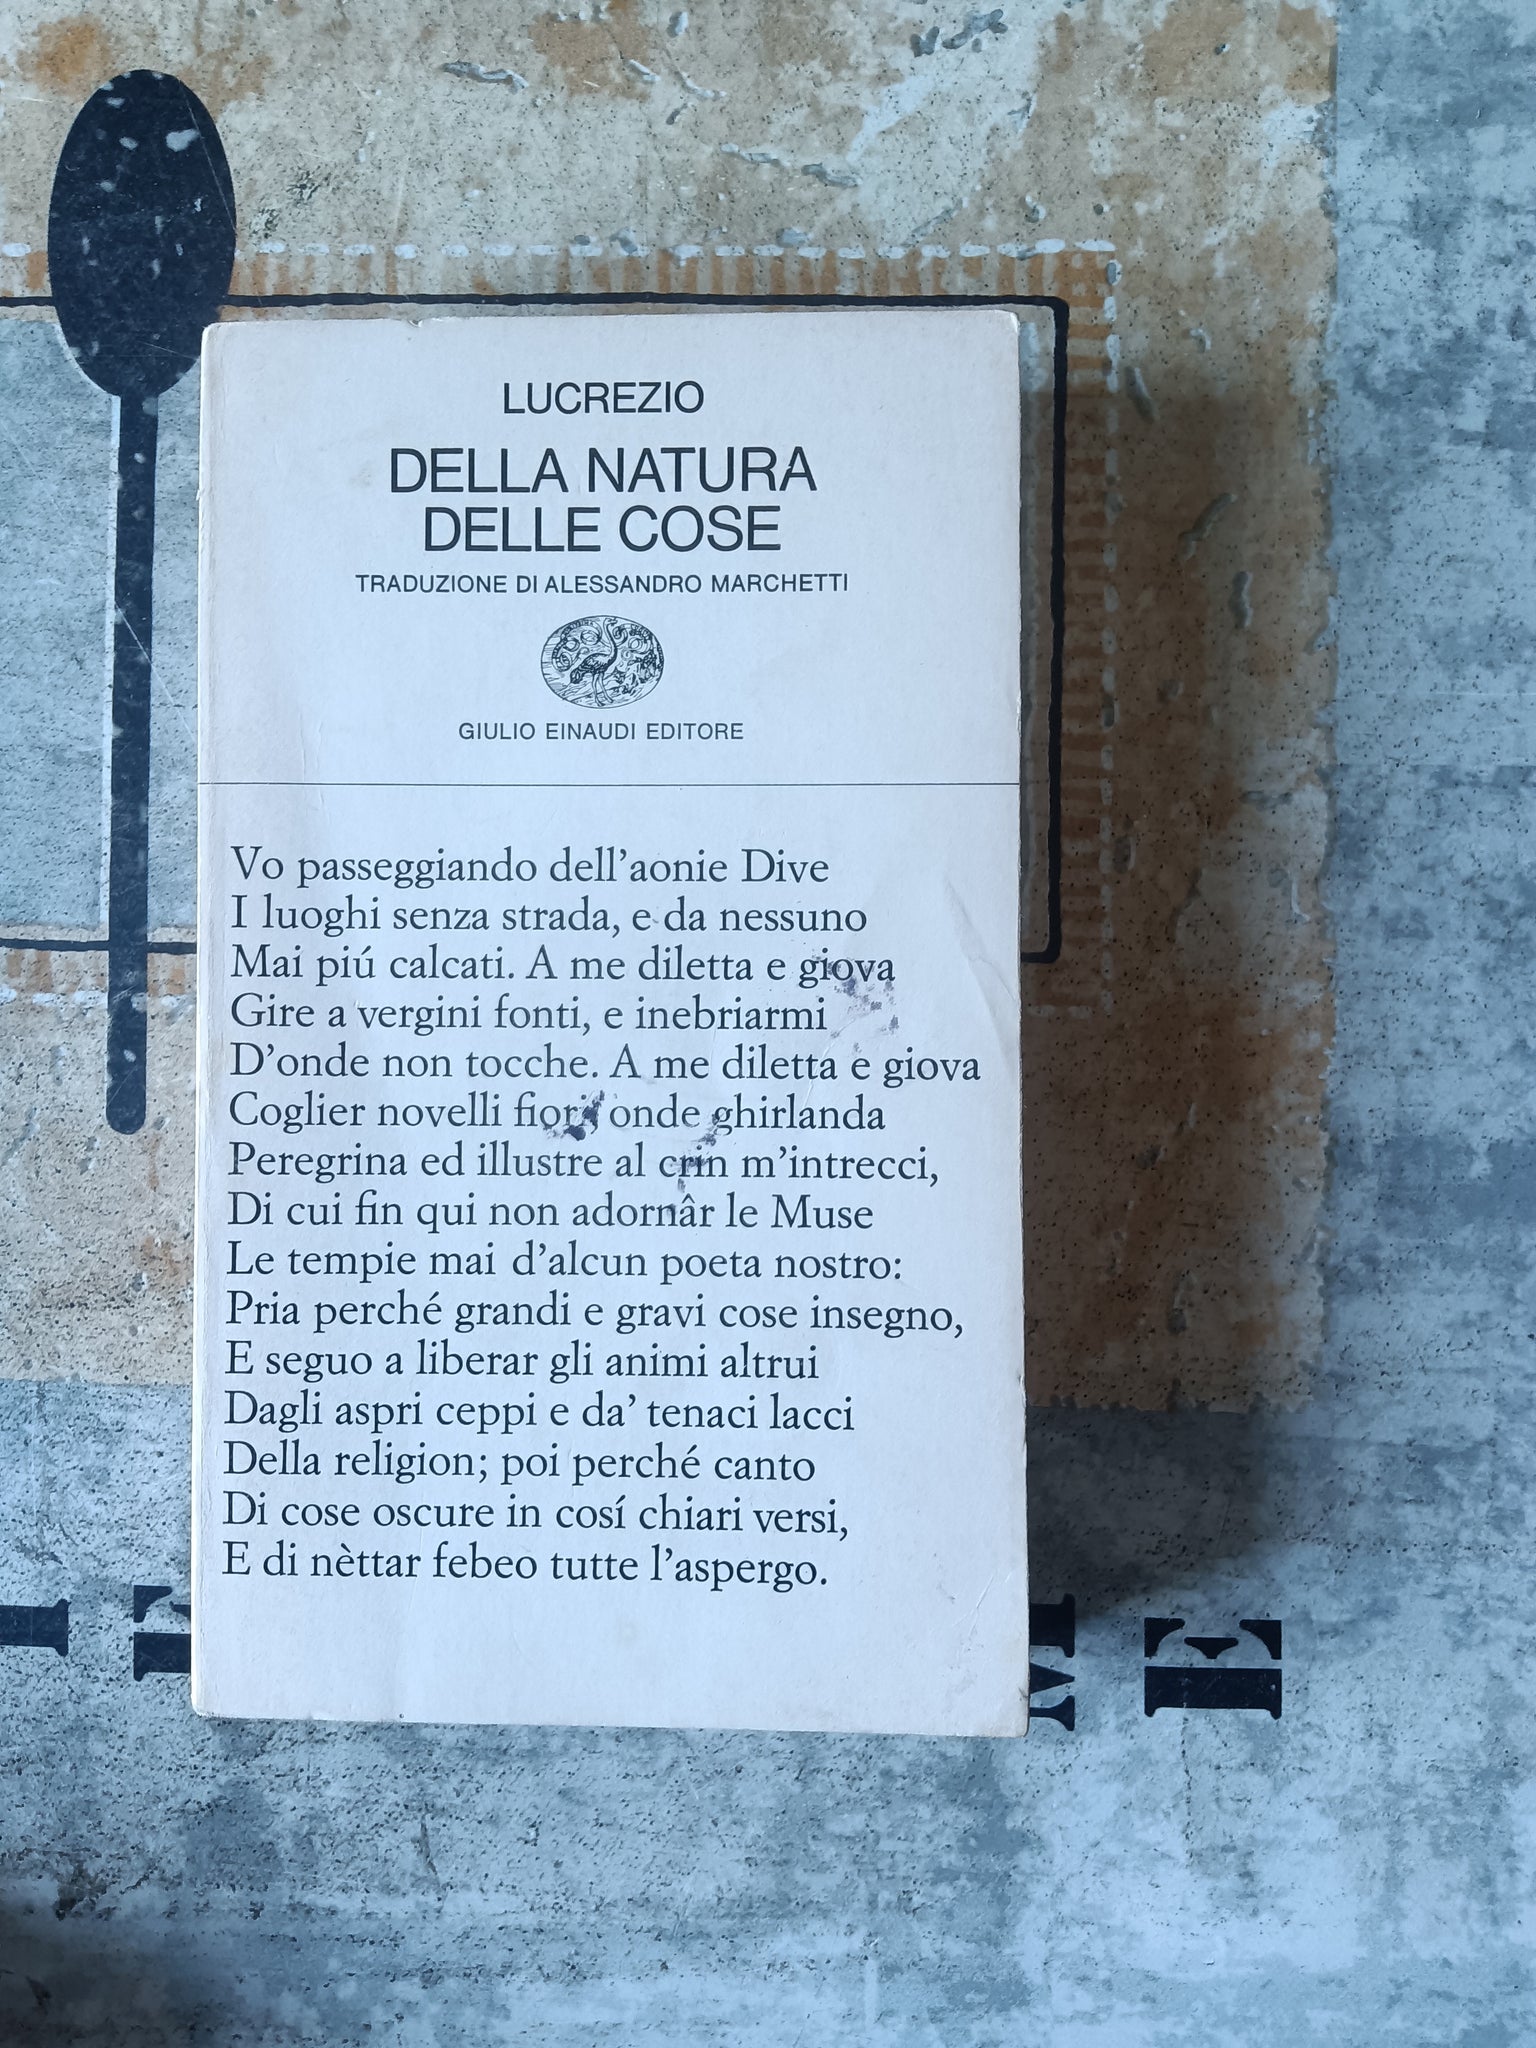 LUCREZIO
DELLA NATURA
DELLE COSE
TRADUZIONE DI ALESSANDRO MARCHETTI
GIULIO EINAUDI EDITORE
Vo passeggiando dell'aonie Dive
I luoghi senza strada, e da nessuno
Mai piú calcati. A me diletta e giova
Gire a vergini fonti, e inebriarmi
D'onde non tocche. A me diletta e giova
Coglier novelli fiori, onde ghirlanda
Peregrina ed illustre al crin m'intrecci,
Di cui fin qui non adornâr le Muse
Le tempie mai d'alcun poeta nostro:
Pria perché grandi e gravi cose insegno,
E seguo a liberar gli animi altrui
Dagli aspri ceppi e da' tenaci lacci
Della religion; poi perché canto
Di cose oscure in cosí chiari versi,
E di nèttar febeo tutte l'aspergo.